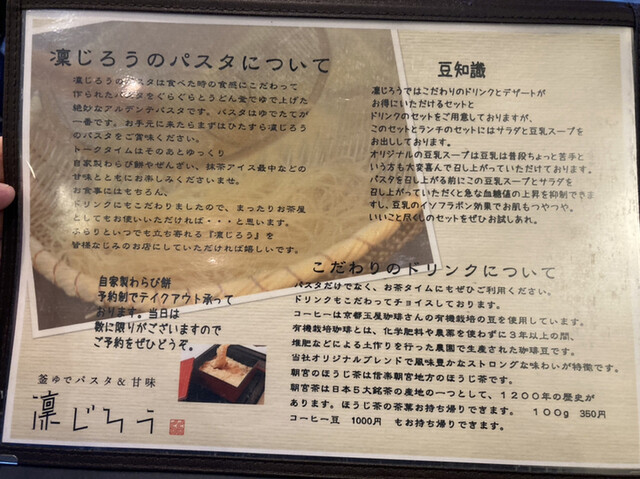 凛じろうのパスタについて
凛じろうのパスタは食べた時の食感にこだわって
作られたパスタをぐらぐらとうどん釜でゆで上げた
絶妙なアルデンテパスタです。パスタはゆでたてが
一番です。お手元に来たらまずはひたすら凛じろう
のパスタをご賞味ください。
トークタイムはそのあとゆっくり
自家製わらび餅やぜんざい、抹茶アイス最中などの
甘味とともにお楽しみくださいませ。
お食事にはもちろん、
ドリンクにもこだわりましたので、まったりお茶屋
としてもお使いいただければ・・・と思います。
ふらりといつでも立ち寄れる『凛じろう』を
皆様なじみのお店にしていただければ嬉しいです。
自家製わらび餅
予約制でテイクアウト承って
おります。当日は
数に限りがございますので
ご予約をぜひどうぞ。
釜ゆでパスタ＆甘味
凛じろう
豆知識
凛じろうではこだわりのドリンクとデザートが
お得にいただけるセットと
ドリンクのセットをご用意しておりますが、
このセットとランチのセットにはサラダと豆乳スープを
お出ししております。
オリジナルの豆乳スープは豆乳は普段ちょっと苦手と
いう方も大変喜んで召し上がっていただけております。
パスタを召し上がる前にこの豆乳スープとサラダを
召し上がっていただくと急な血糖値の上昇を抑制できま
すし、豆乳のイソフラボン効果でお肌もつやつや。
いいこと尽くしのセットをぜひお試しあれ。
こだわりのドリンクについて
パスタだけでなく、お茶タイムにもぜひご利用ください。
ドリンクもこだわってチョイスしております。
コーヒーは京都玉屋珈琲さんの有機栽培の豆を使用しています。
有機栽培珈琲とは、化学肥料や農薬を使わずに３年以上の間、
堆肥などによる土作りを行った農園で生産された珈琲豆です。
当社オリジナルブレンドで風味豊かなストロングな味わいが特徴です。
朝宮のほうじ茶は信楽朝宮地方のほうじ茶です。
朝宮茶は日本５大銘茶の産地の一つとして、１２００年の歴史が
あります。ほうじ茶の茶葉お持ち帰りできます。 １００g 350円
コーヒー豆 1000円 もお持ち帰りできます。